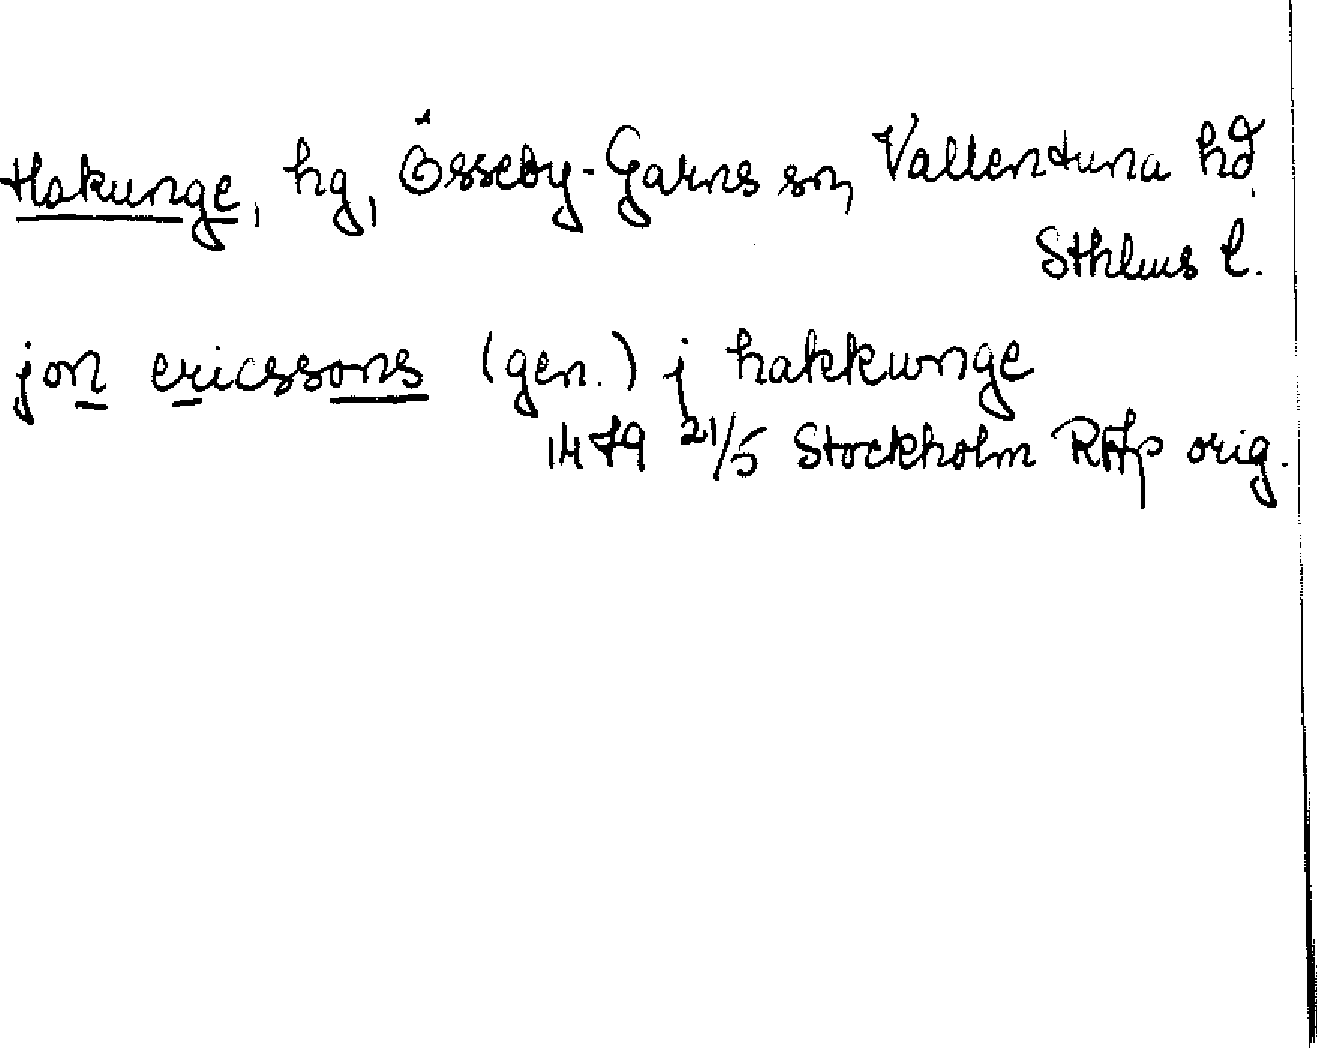 Hakunge, hg, Össeby-Garns sn, Vallentuna hd,
Sthlms l.
jon ericssons (gen.) j hakkunge
1479 21/5 Stockholm RAp orig.